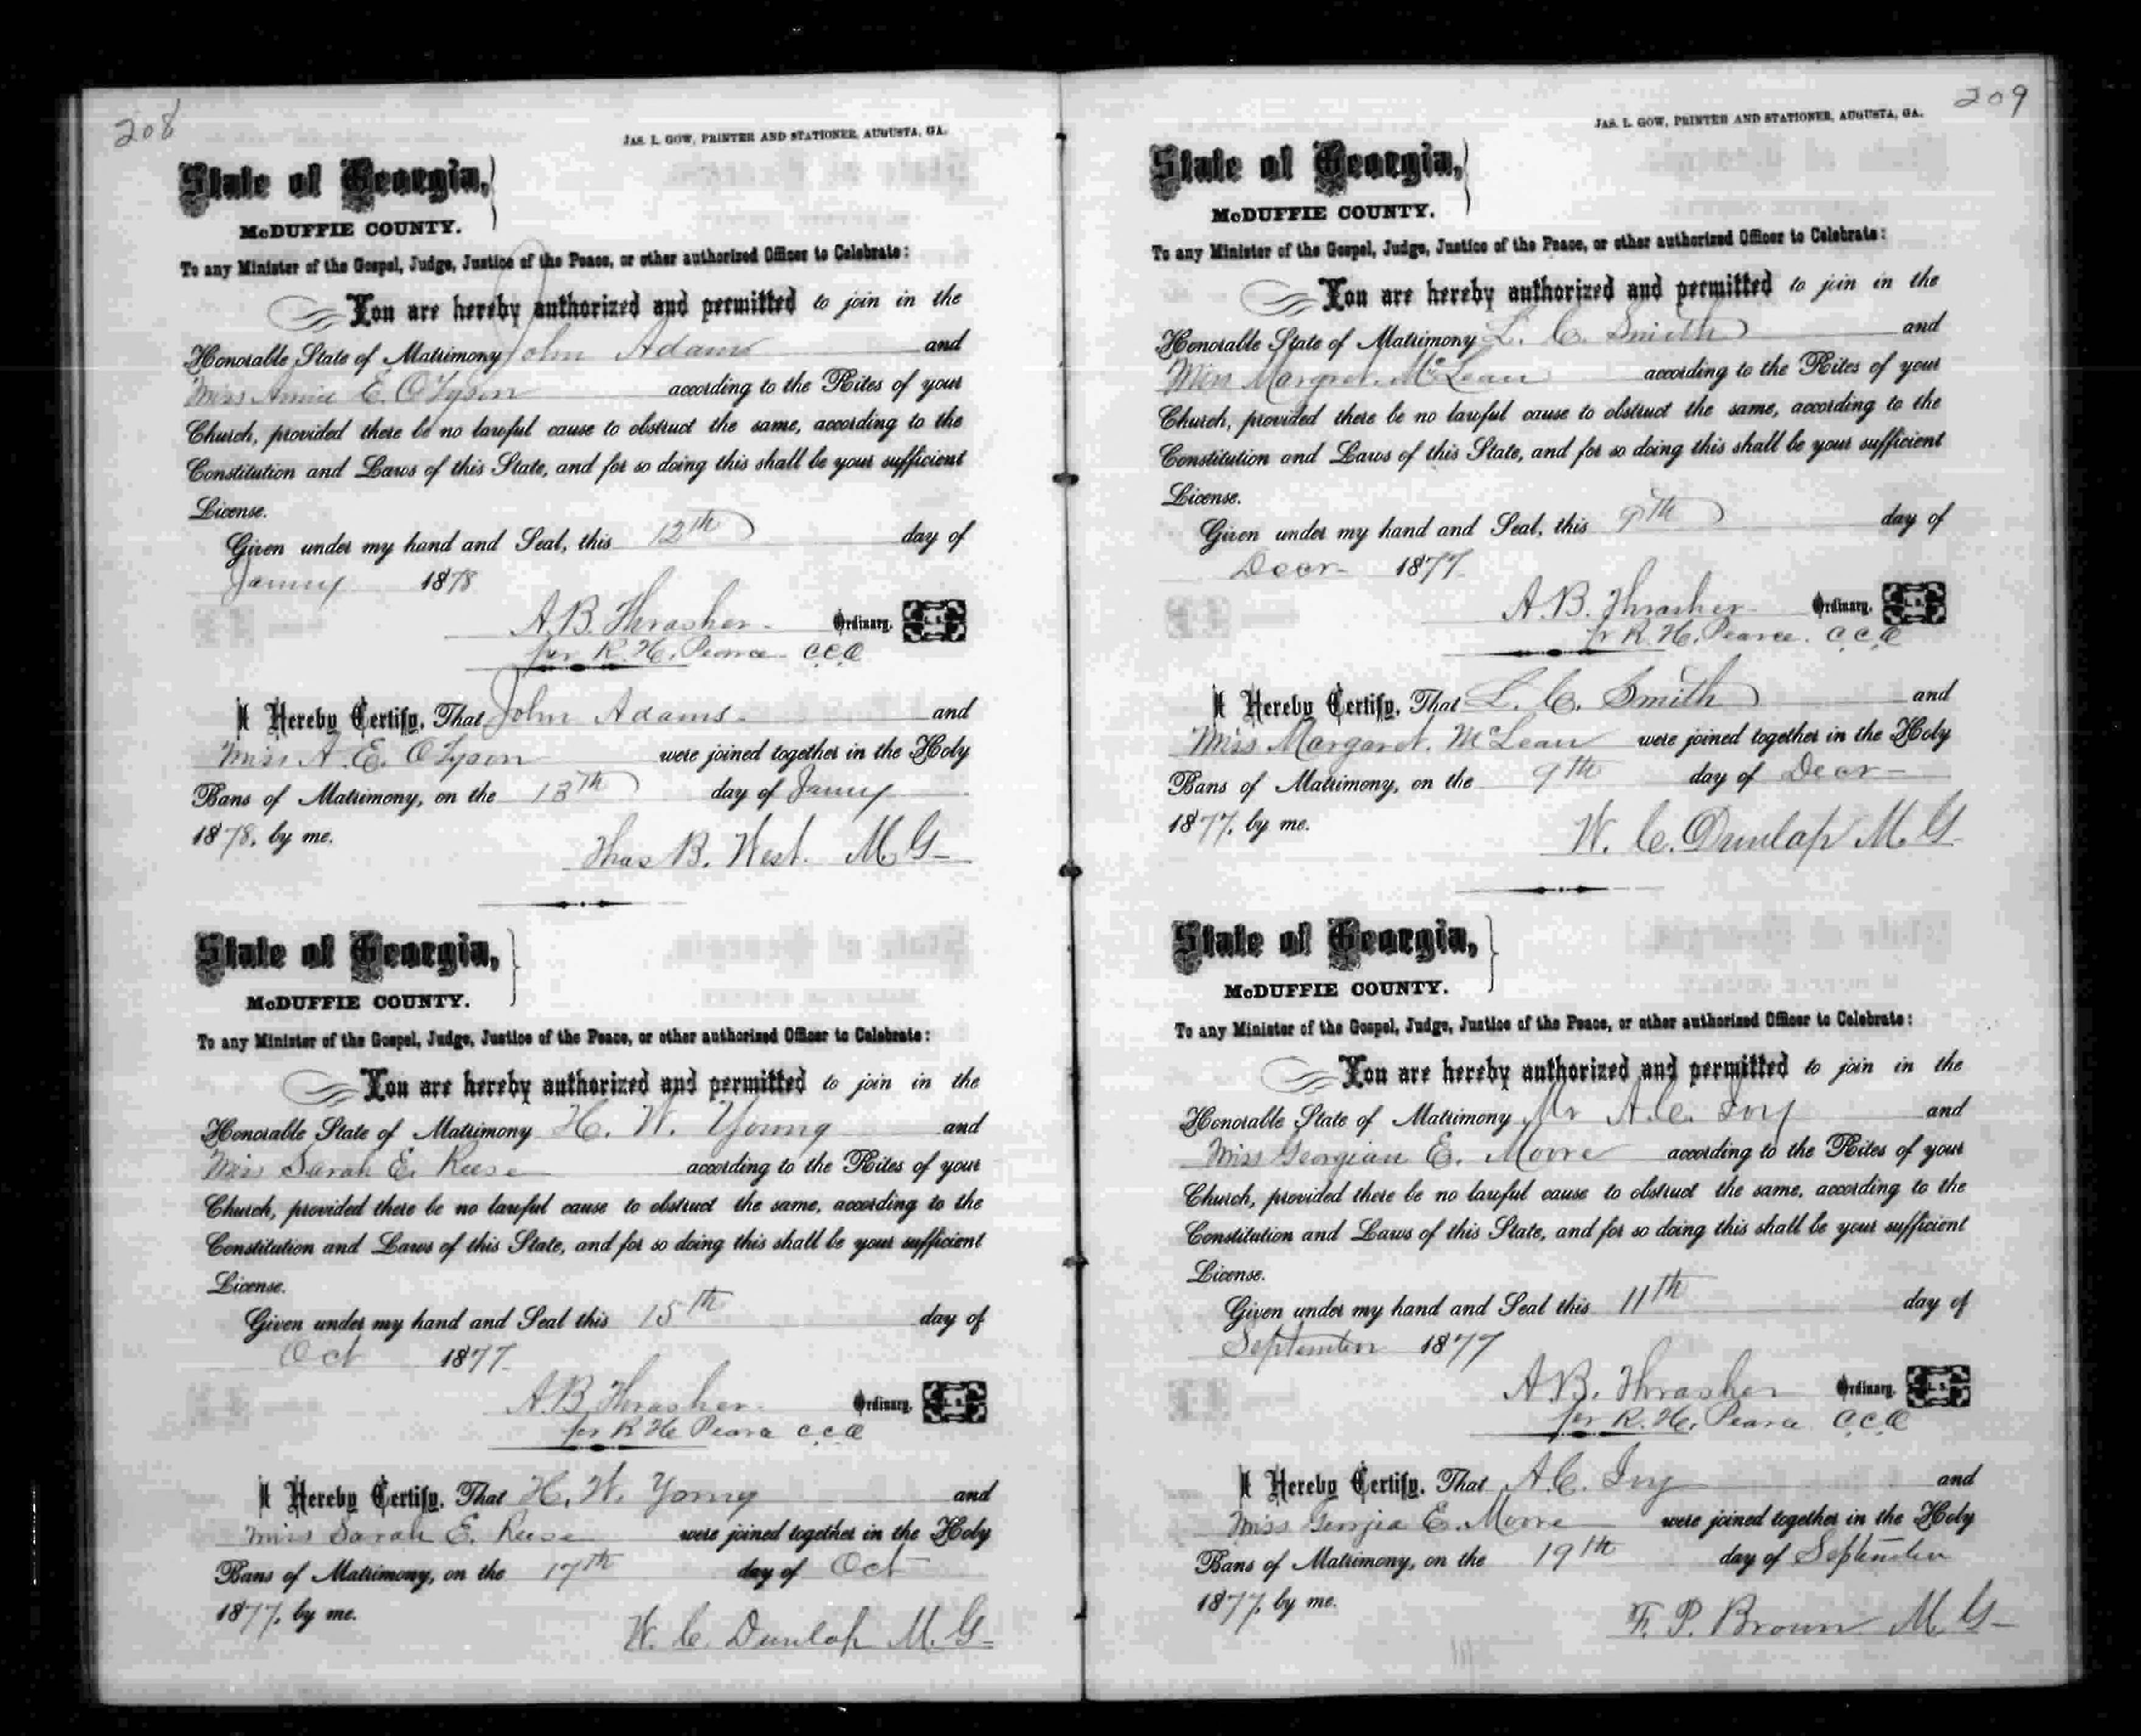 208
JAS. L. GOW, PRINTER AND STATIONER, AUGUSTA, GA.
State of Georgia,
McDUFFIE COUNTY.
To any Minister of the Gospel, Judge, Justice of the Peace, or other authorized Officer to Celebrate:
You are hereby authorized and permitted to join in the
Honorable State of Matrimony John Adams and
Miss Annie E. OTyson according to the Rites of your
Church, provided there be no lawful cause to obstruct the same, according to the
Constitution and Laws of this State, and for so doing this shall be your sufficient
License.
Given under my hand and Seal, this 12th day of
Janny 1878
A. B. Thrasher. Ordinary. L. S.
per R. H. Pearce C.C.O
I Hereby Certify, That John Adams. and
Miss A. E. OTyson were joined together in the Holy
Bans of Matrimony, on the 13th day of Janny
1878, by me.
Thos B. West. M G
State of Georgia,
McDUFFIE COUNTY.
To any Minister of the Gospel, Judge, Justice of the Peace, or other authorized Officer to Celebrate:
You are hereby authorized and permitted to join in the
Honorable State of Matrimony H. W. Young and
Miss Sarah E. Reese according to the Rites of your
Church, provided there be no lawful cause to obstruct the same, according to the
Constitution and Laws of this State, and for so doing this shall be your sufficient
License.
Given under my hand and Seal this 15th day of
Oct 1877
A. B Thrasher. Ordinary. L. S.
per R H Pearce C.C.O
I Hereby Certify, That H. W. Young and
Miss Sarah E. Reese were joined together in the Holy
Bans of Matrimony, on the 17th day of Oct
1877, by me.
W. C. Dunlap M. G.
209
JAS. L. GOW, PRINTER AND STATIONER, AUGUSTA, GA.
State of Georgia,
McDUFFIE COUNTY.
To any Minister of the Gospel, Judge, Justice of the Peace, or other authorized Officer to Celebrate:
You are hereby authorized and permitted to join in the
Honorable State of Matrimony L. C. Smith and
Miss Margret. McLean according to the Rites of your
Church, provided there be no lawful cause to obstruct the same, according to the
Constitution and Laws of this State, and for so doing this shall be your sufficient
License.
Given under my hand and Seal, this 9th day of
Decr 1877
A. B. Thrasher Ordinary. L. S.
pr R. H. Pearce. C.C.O
I Hereby Certify, That L. C. Smith and
Miss Margaret. McLean were joined together in the Holy
Bans of Matrimony, on the 9th day of Decr
1877, by me.
W. C. Dunlap M. G.
State of Georgia,
McDUFFIE COUNTY.
To any Minister of the Gospel, Judge, Justice of the Peace, or other authorized Officer to Celebrate:
You are hereby authorized and permitted to join in the
Honorable State of Matrimony Mr A. C. Ivy and
Miss Georgian E. Moore according to the Rites of your
Church, provided there be no lawful cause to obstruct the same, according to the
Constitution and Laws of this State, and for so doing this shall be your sufficient
License.
Given under my hand and Seal this 11th day of
September 1877
A. B. Thrasher Ordinary. L. S.
per R. H. Pearce C.C.O
I Hereby Certify, That A. C. Ivy and
Miss Georgia E. Moore were joined together in the Holy
Bans of Matrimony, on the 19th day of September
1877, by me.
F. P. Brown M. G.